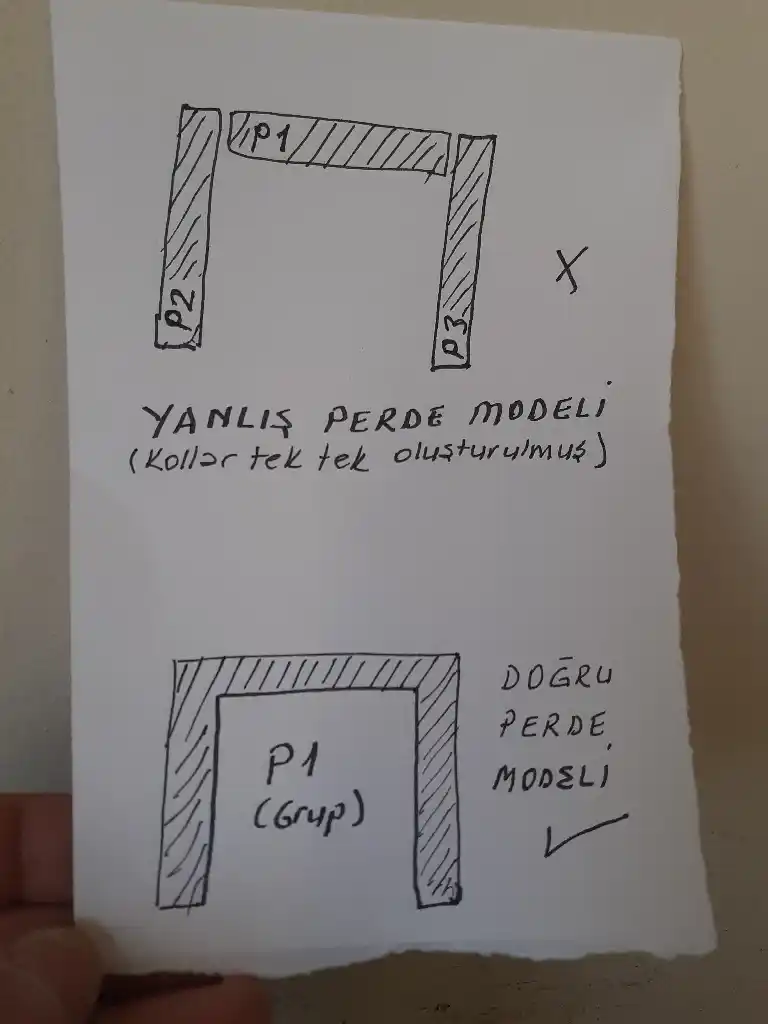 P1
P2
P3
X
YANLIŞ PERDE MODELİ
(Kollar tek tek oluşturulmuş)
P1
(Grup)
DOĞRU
PERDE
MODELİ